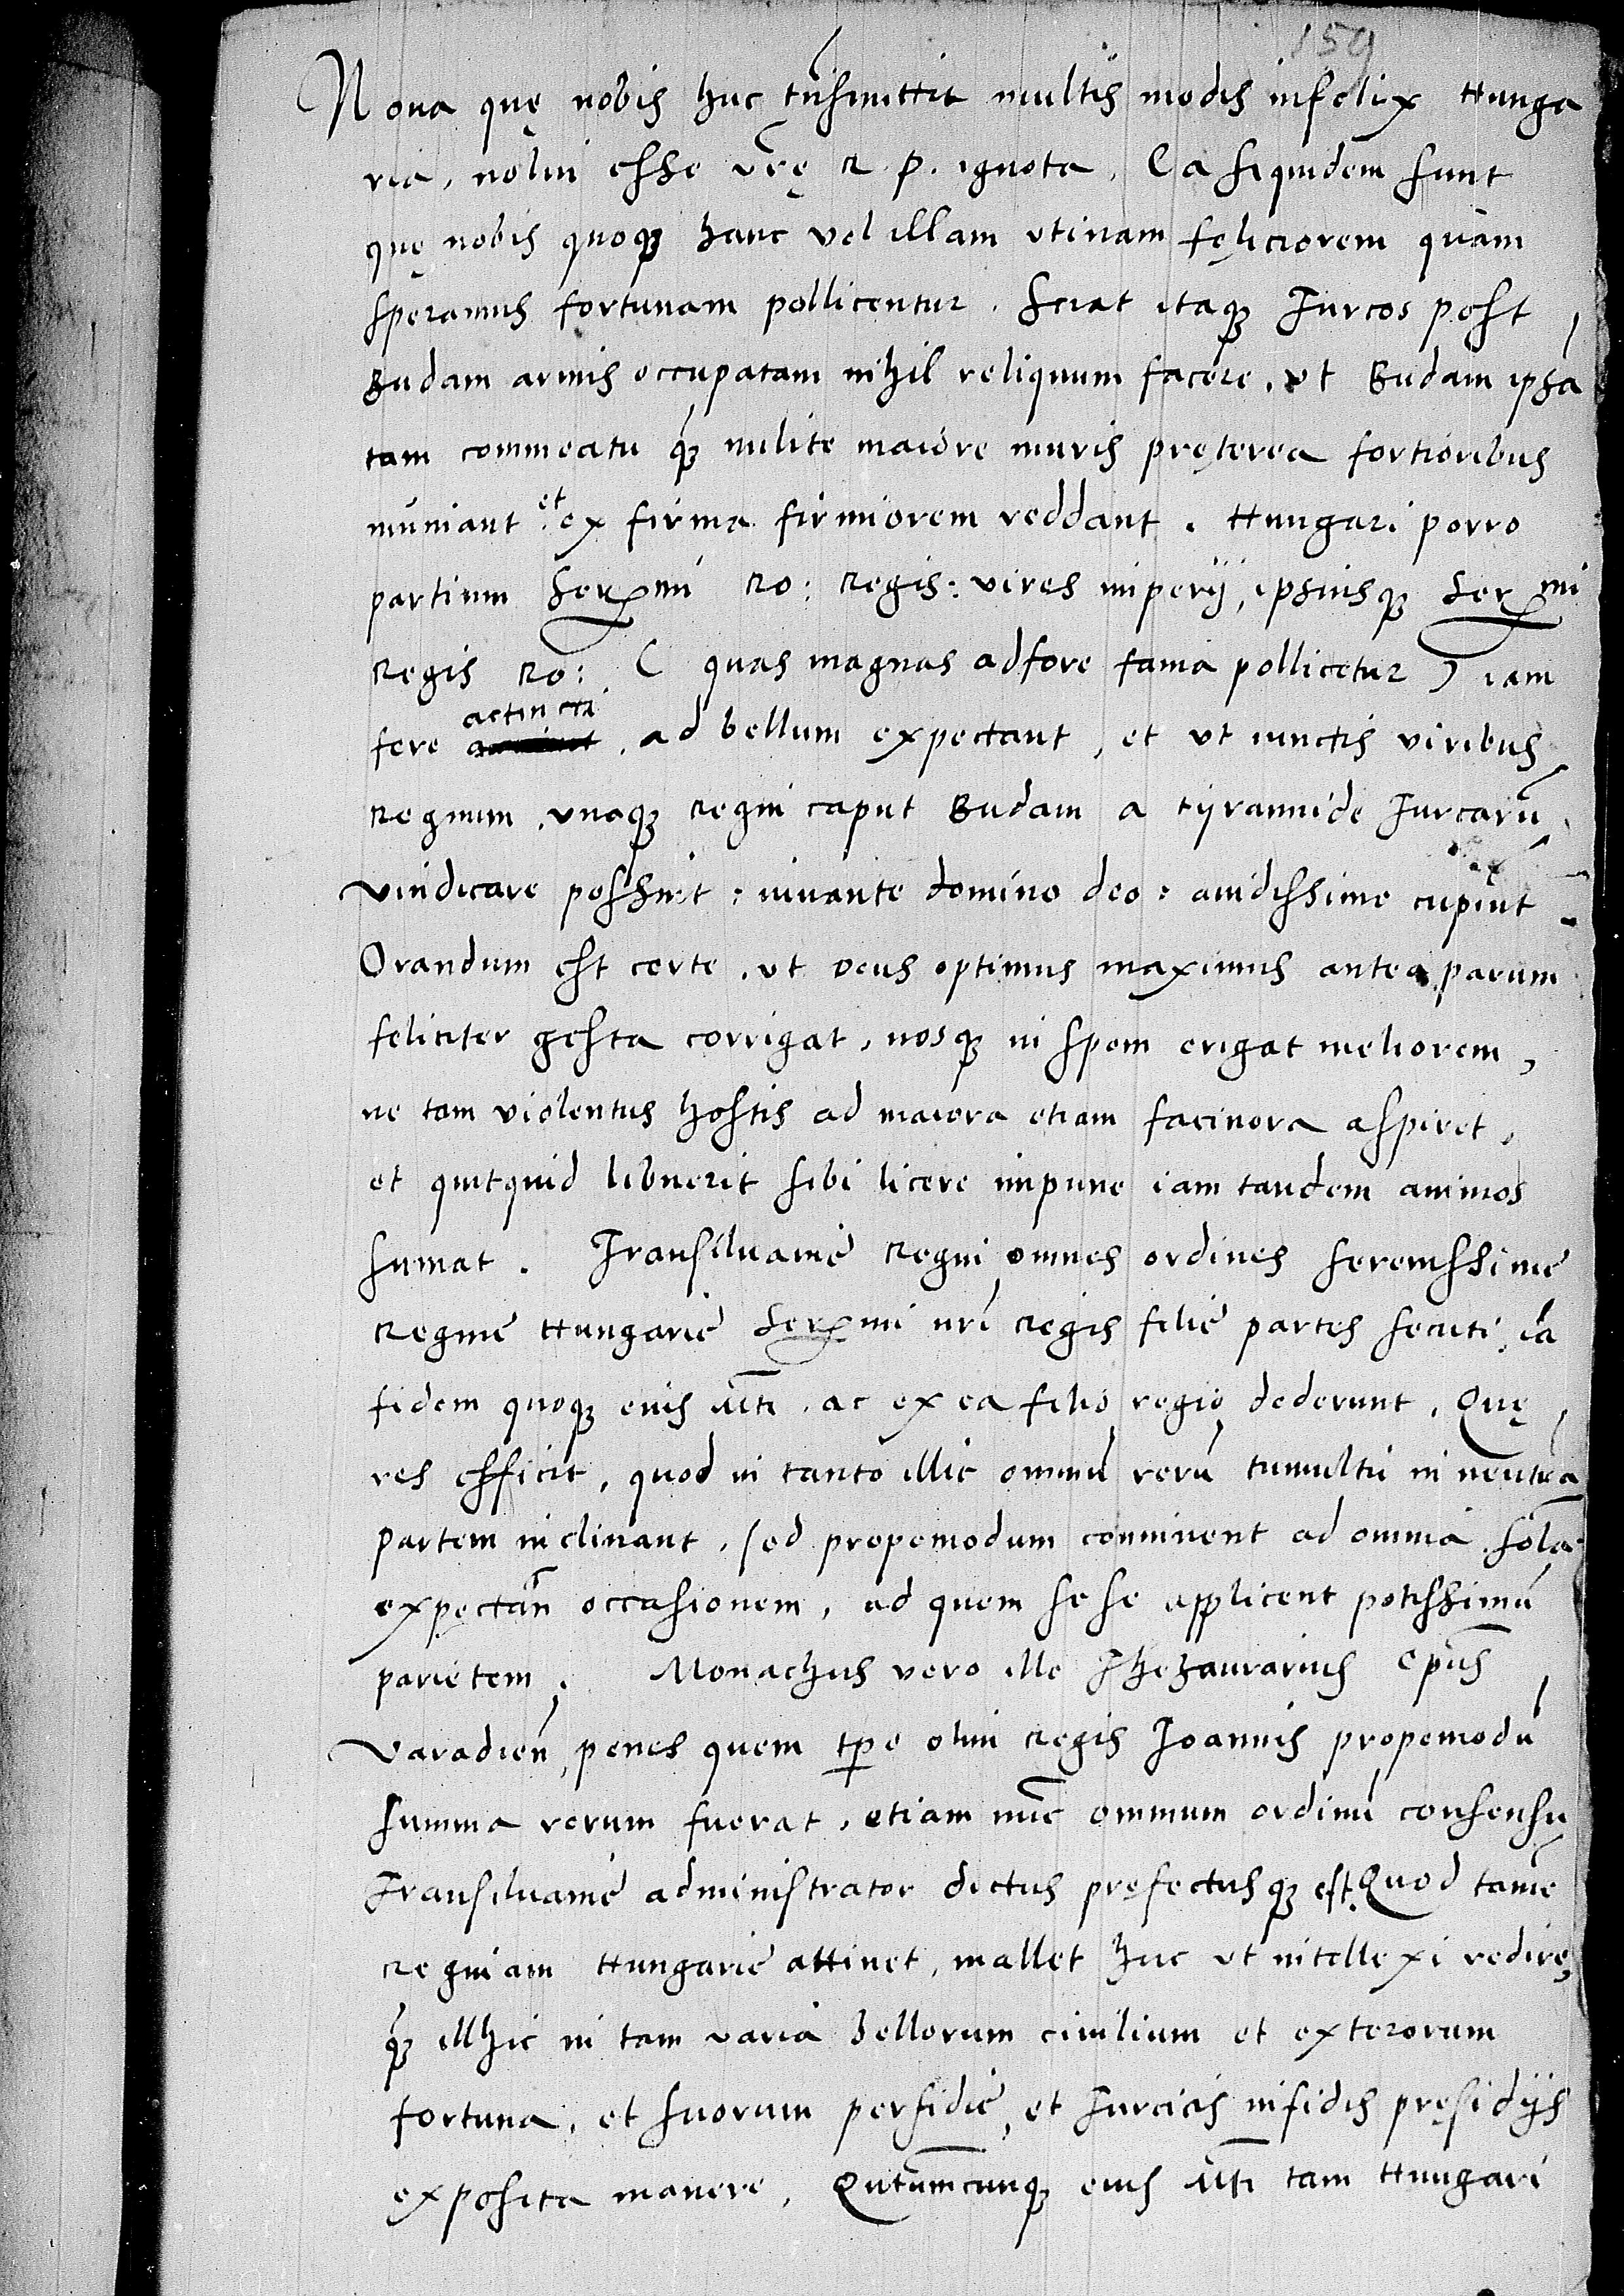 159
Noua quę nobis huc trãsmittit multis modis infelix Hunga
ria, nolui esse vr̃ę R. P. ignota. Ea siquidem sunt
quę nobis quoq3 hanc vel illam vtinam fęliciorem quàm
speramus fortunam pollicentur. Sciat itaq3 Turcos post
Budam armis occupatam nihil reliquum facere, vt Budam ipsã
tam commeatu q̃3 milite maiore muris pręterea fortioribus
muniant et ex firma firmiorem reddant. Hungari porro
partium Serᵐⁱ Ro: Regis: vires imperij, ipsiusq3 Serᵐⁱ
Regis Ro: ( quas magnas adfore fama pollicetur ) iam
fere accincti, ad bellum expectant, et vt iunctis viribus
Regnum, vnaq3 Regni caput Budam a tyrannide Turcarũ
vindicare possint: iuuante domino deo: auidissime cupiũt
Orandum est certe, vt Deus optimus maximus antea parum
feliciter gesta corrigat, nosq3 in spem erigat meliorem,
ne tam violentus hostis ad maiora etiam facinora aspiret,
et quitquid libuerit sibi licere impune iam tandem animos
sumat. Transiluanię Regni omnes ordines serenissimę
Reginę Hungarię Serᵐⁱ nr̃i Regis filię partes secuti, iã
fidem quoq3 eius Mti. ac ex ea filio regio dederunt. Quę
res efficit, quod in tanto illic omniũ rerũ tumultu in neutrã
partem inclinant, sed propemodum conniuent ad omnia, solã
expectãn occasionem, ad quem sese applicent potissimũ
parietem. Monachus vero ille Thezaurarius Ep̃us
Varadieñ, penes quem tp̃e olim Regis Joannis propemodũ
summa rerum fuerat, etiam nũc omnium ordinũ consensu
Transiluanię administrator dictus pręfectusq3 est. Quod tamẽ
Reginam Hungarię attinet, mallet huc vt intellexi redire,
q̃3 illhic in tam varia bellorum ciuilium et exterorum
fortuna, et suorum perfidię, et Turcicis infidis pręsidijs
exposita manere. Qutumcunq3 eius Mti tam Hungari